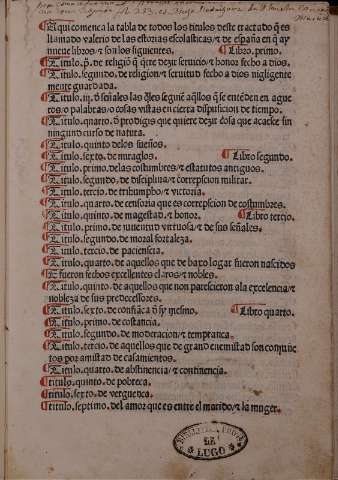 ¶Aqui comiença la tabla de todos los titulos deste tractado q̃ es
llamado valerio de las estorias escolasticas/ ⁊ de españa en q̃ ay
nueue libros/ ⁊ son los siguientes. ¶Libro .primo.
¶Titulo .p̃. de religiõ q̃ q̃ere dezir seruicio/ ⁊ honor fecho a dios.
¶Titulo .segundo. de religion/ ⁊ seruitud fecho a dios nigligente
mente guardada.
¶Titulo .iij. de señales las q̃les segũd aq̃llos q̃ se entẽdẽ en ague
ros/ o palabras/ o cosas vistas en cierta dispusicion de tiempo.
¶Titulo .quarto. de prodigis que quiere dezir cosa que acaesce sin
ningund curso de natura.
¶Titulo .quinto. delos sueños.
¶Titulo .sexto. de miraglos. ¶Libro segundo.
¶Titulo .primo. delas costumbres/ ⁊ estatutos antiguos.
¶Titulo .segundo. de disciplina/ ⁊ correpcion militar.
¶Titulo .tercio. de triumpho/ ⁊ victoria.
¶Titulo .quarto. de censoria que es correpcion de costumbres.
¶Titulo .quinto. de magestad/ ⁊ honor. ¶Libro tercio.
¶Titulo .primo. de juuentud virtuosa/ ⁊ de sus señales.
¶Titulo .segundo. de moral fortaleza.
¶Titulo .tercio. de paciencia.
¶Titulo .quarto. de aquellos que de baxo logar fueron nascidos
E fueron fechos excellentes claros/ ⁊ nobles.
¶Titulo .quinto. de aquellos que non parescieron ala excelencia/ ⁊
nobleza de sus predecessores.
¶Titulo .sexto. de confiança ẽ sy mesmo. ¶Libro quarto.
¶Titulo .primo. de constancia.
¶Titulo .segundo. de moderacion/ ⁊ temprança.
¶Titulo .tercio. de aquellos que de grand enemistad son conjunc
tos por amistad de casamientos.
¶Titulo .quarto. de abstinencia/ ⁊ continencia.
¶titulo .quinto. de pobreça.
¶titulo .sexto. de verguença.
¶titulo .septimo. del amor que es entre el marido/ ⁊ la muger.
BIBLIOTECA PUBCA
DE
LUGO